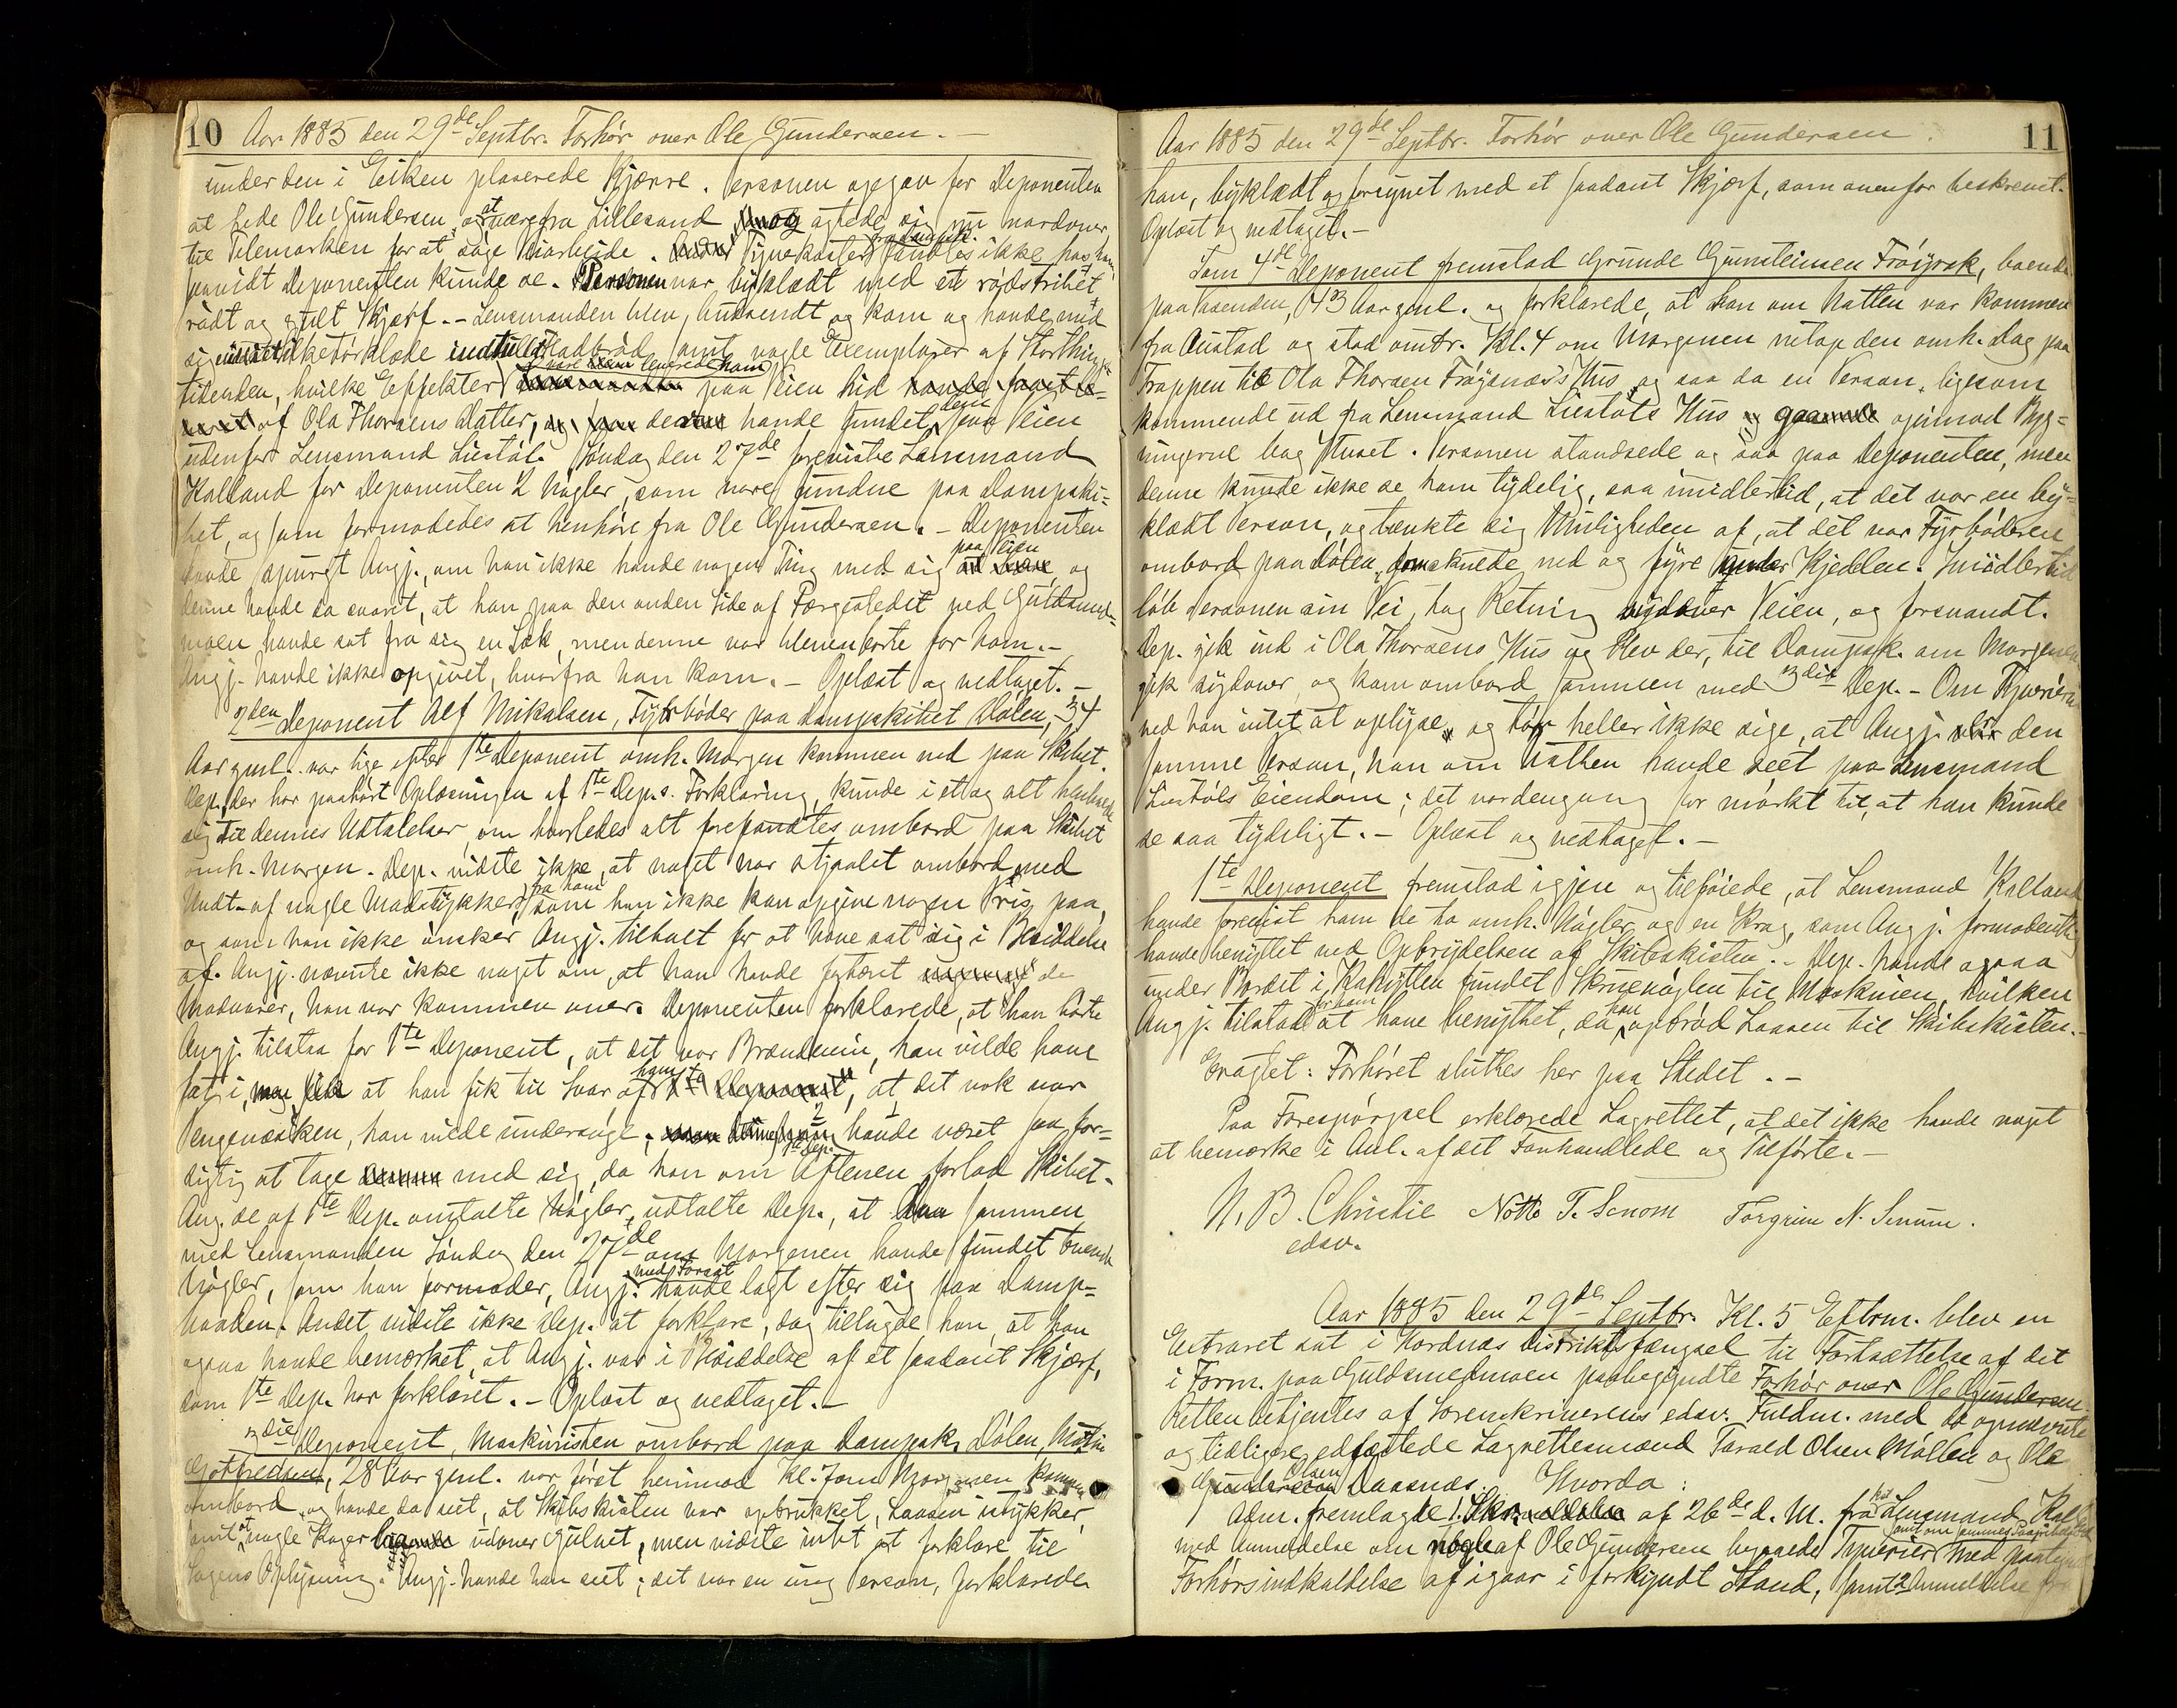 10 Aar 1885 den 29de Septbr. Forhör over Ole Gundersen. —
under den i Eiken placerede Kjærre. Personen opgav for Deponenten
at hede Ole Gundersen, at være fra Lillesand og agtede sig nu nordover
til Telemarken for at söge Arbeide. Tyvekoster fandtes ikke hos ham,
saavidt Deponenten kunde se. Personen var byklædt med et rödstribet
rödt og gult Skjærf. - Lensmanden blev budsendt og kom og havde med
sig Silketörklæde indtullet Fladbröd samt nogle Exemplarer af Storthings-
tidenden, hvilke Effekter vare leveret ham paa Veien hid
af Ola Thorsens Datter, der havde fundet dem paa Veien
udenfor Lensmand Liestöl. Söndag den 27de foreviste Lensmand
Kalland for Deponenten 2 Nögler, som vare fundne paa Dampski-
bet, og som formodedes at henhöre fra Ole Gundersen. - Deponenten
havde spurgt Angj., om han ikke havde nogen Ting med sig paa Veien og
denne havde da svaret, at han paa den anden Side af Færgestedet ved Guldsmed-
moen havde sat fra sig en Sæk, men denne var bleven borte for ham. -
Angj. havde ikke opgivet, hvorfra han kom. - Oplæst og vedtaget. -
2den Deponent Alf Mikalsen, Fyrböder paa Dampskibet Dölen, 34
Aar gml. var lige efter 1ste Deponent omh. Morgen kommen ned paa Skibet.
Dep. der har paahört Oplæsningen af 1ste Dep.s. Forklaring, kunde i ett og alt henholde
sig til dennes Udtalelser, om hvorledes alt forefandtes ombord paa Skibet
omh. Morgen. Dep. vidste ikke, at noget var stjaalet ombord med
Undt. af nogle Madstykker fra ham som han ikke kan opgive nogen Pris paa,
og som han ikke önsker Angj. tiltalt for at have sat sig i Besiddelse
af. Angj. nævnte ikke noget om, at han havde fortæret de
Madvarer, han var kommen over. Deponenten forklarede, at han hörte
Angj. tilstaa for 1ste Deponent, at det var Brændevin, han vilde have
fat i, at han fik til Svar af ham, at det nok var
Pengevæsken, han vilde undersöge, havde været saa for-
sigtig at tage med sig, da han om Aftenen forlod Skibet.
Ang. de af 1ste Dep. omtalte Nögler, udtalte Dep., at sammen
med Lensmanden Söndag den 27de om Morgenen havde fundet tvende
Nögler, som han formoder, Angj. med Forsæt havde lagt efter sig paa Damp-
baaden. Andet vidste ikke Dep. at forklare, dog tillagde han, at han
ogsaa havde bemærket, at Angj. var i Besiddelse af et saadant Skjærf,
som 1ste Dep. har forklaret. - Oplæst og vedtaget. -
3die Deponent, Maskinisten ombord paa Dampsk. Dölen,
28 Aar gml. var först henimod Kl. Morgenen kommen
ombord og havde da seet, at Skibskisten var opbrukket, Laasen istykker,
samt at nogle Kager udover Gulvet, men vidste intet at forklare til
Sagens Oplysning. Angj. havde han seet; det var en ung Person, forklarede
Aar 1885 den 29de Septbr. Forhör over Ole Gundersen. 11
han, byklædt og forsynet med et saadant Skjærf, som ovenfor beskrevet.
Oplæst og vedtaget. -
Som 4de Deponent fremstod Grunde Gunsteinsen Fröysok, boende
paa, 43 Aar gml. og forklarede, at han om Natten var kommen
fra Austad og stod omtr. Kl. 4 om Morgenen netop den omh. Dag paa
Trappen til Ola Thorsen Fröysnæs's Hus, og saa da en Person, ligesom
kommende ud fra Lensmand Liestöls Hus opimod Byg-
ningerne bag Huset. Personen standsede og saa paa Deponenten, men
denne kunde ikke se ham tydelig, saa imidlertid, at det var en by-
klædt Person, og tænkte sig Muligheden af, at det var Fyrböderen
ombord paa Dölen, som skulde ned og fyre under Kjedelen. Imidlertid
löb Personen sin Vei, tog Retning sydover Veien, og forsvandt.
Dep. gik ind i Ola Thorsens Hus og blev der, til Dampsk. om Morgenen
gik sydover og kom ombord sammen med 3die Dep. - Om Tyverierne
ved han intet at oplyse, og tör heller ikke sige, at Angj. er den
samme Person, han om Natten havde seet paa Lensmand
Liestöls Eiendom; det var dengang for mörkt til, at han kunde
se saa tydeligt. - Oplæst og vedtaget. -
1ste Deponent fremstod igjen og tilföiede, at Lensmand Kalland
havde forevist ham de to omh. Nögler og en Krog, som Angj. formodentlig
havde benyttet ved Opbrydelsen af Skibskisten. - Dep. havde ogsaa
under Bordet i Kahytten fundet Skruenöglen til Maskinen, hvilken
Angj. tilstod for ham at have benyttet, da han opbröd Laasen til Skibskisten. -
Eragtet: Forhöret sluttes her paa Stedet. -
Paa Forespörgsel erklærede Lagrettet, at det ikke havde noget
at bemærke i Anl. af det Forhandlede og Tilförte. -
N. B. Christie Notto T. Senom Torgrim N. Senum.
edsv.
Aar 1885 den 29de Septbr. Kl. 5 Efterm. blev en
Extraret sat i Hordnæs Distriktsfængsel til Fortsættelse af det
i Form. paa Guldsmedmoen paabegyndte Forhör over Ole Gundersen.
Retten betjentes af Sorenskriverens edsv. Fuldm. med de opnævnte
og tidligere edfæstede Lagrettesmænd Tarald Olsen Möllen og Ole
Olsen Daasnæs. Hvorda:
Adm. fremlagde 1. af 26de d. M. fra Lensmand Kalland
med Anmeldelse om nogle af Ole Gundersen begaaede Tyverier med paategnet
Forhörsindkaldelse af igaar i forkyndt Stand, samt 2 Anmeldelse fra